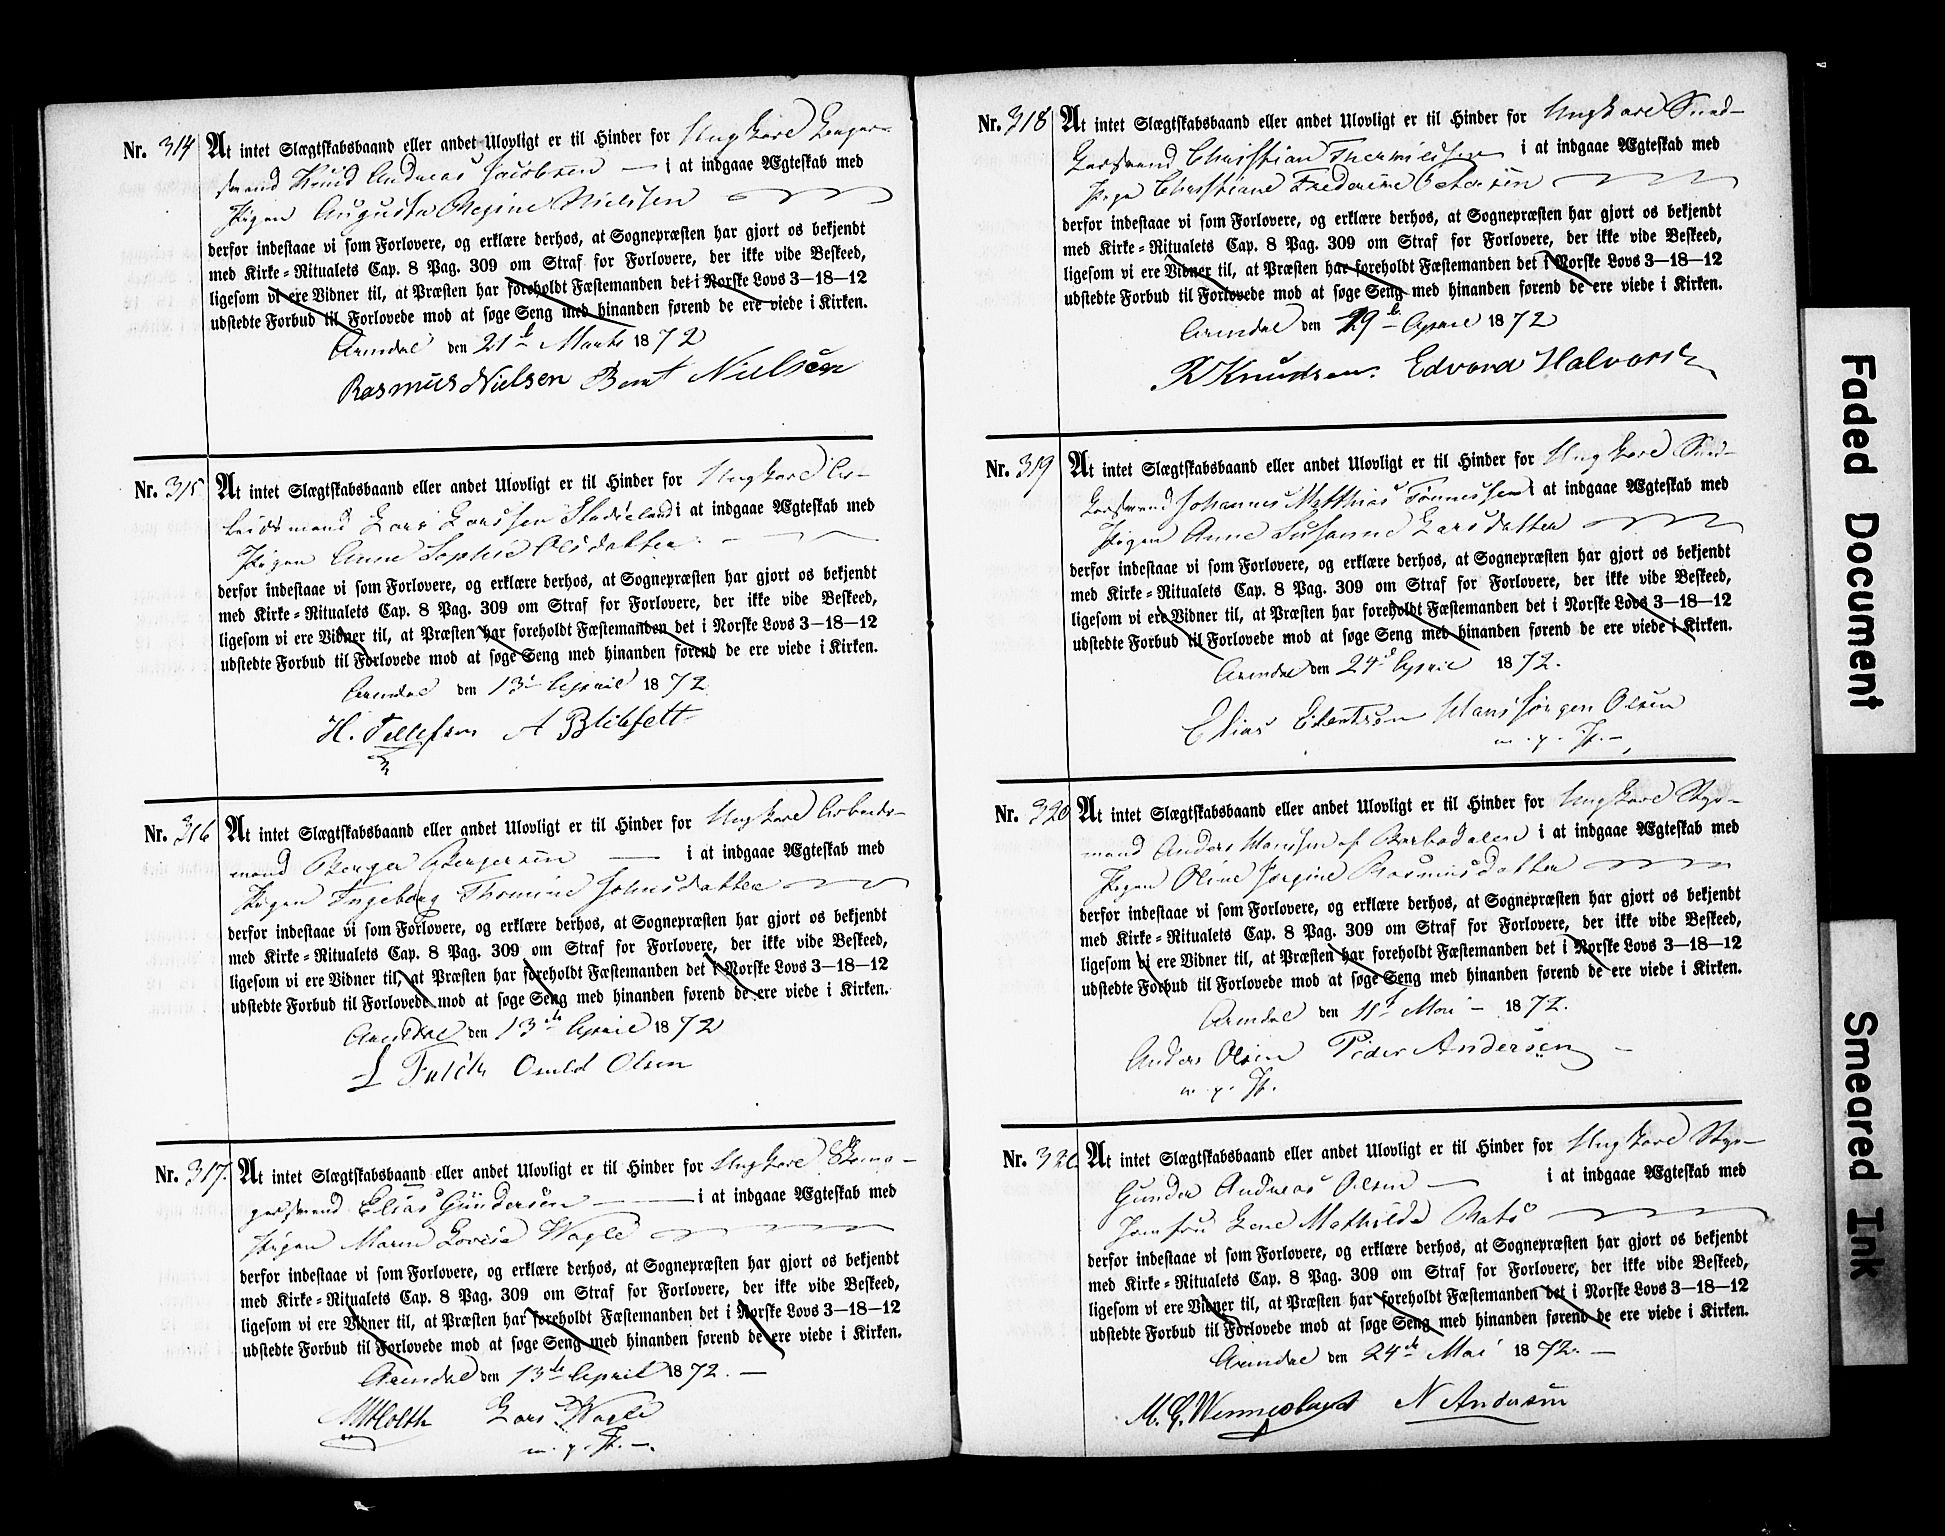 Nr. 314 At intet Slægtskabsbaand eller andet Ulovligt er til Hinder for Ungkarl
mand Knud Andreas Jacobsen — i at indgaae Ægteskab med
Pigen Augusta Regine Nielsen
derfor indestaae vi som Forlovere, og erklære derhos, at Sognepræsten har gjort os bekjendt
med Kirke=Ritualets Cap. 8 Pag. 309 om Straf for Forlovere, der ikke vide Beskeed,
ligesom vi ere Vidner til, at Præsten har foreholdt Fæstemanden det i Norske Lovs 3—18—12
udstedte Forbud til Forlovede mod at søge Seng med hinanden førend de ere viede i Kirken.
Arendal den 21de Marts 1872
Rasmus Nielsen Bernt Nielsen
Nr. 315 At intet Slægtskabsbaand eller andet Ulovligt er til Hinder for Ungkarl Ar-
beidsmand Lars Larssen i at indgaae Ægteskab med
Pigen Anne Sophie Olsdatter
derfor indestaae vi som Forlovere, og erklære derhos, at Sognepræsten har gjort os bekjendt
med Kirke=Ritualets Cap. 8 Pag. 309 om Straf for Forlovere, der ikke vide Beskeed,
ligesom vi ere Vidner til, at Præsten har foreholdt Fæstemanden det i Norske Lovs 3—18—12
udstedte Forbud til Forlovede mod at søge Seng med hinanden førend de ere viede i Kirken.
Arendal den 13de April 1872
H. Tellefsen A Blikfelt
Nr. 316 At intet Slægtskabsbaand eller andet Ulovligt er til Hinder for Ungkarl Arbeids-
mand Berger Bergersen — i at indgaae Ægteskab med
Pigen Ingeborg Thomine Johnsdatter
derfor indestaae vi som Forlovere, og erklære derhos, at Sognepræsten har gjort os bekjendt
med Kirke=Ritualets Cap. 8 Pag. 309 om Straf for Forlovere, der ikke vide Beskeed,
ligesom vi ere Vidner til, at Præsten har foreholdt Fæstemanden det i Norske Lovs 3—18—12
udstedte Forbud til Forlovede mod at søge Seng med hinanden førend de ere viede i Kirken.
Arendal den 13de April 1872
L Falck Osuld Olsen
Nr. 317. At intet Slægtskabsbaand eller andet Ulovligt er til Hinder for Ungkarl
Elias Gundersen — i at indgaae Ægteskab med
Pigen Maren Lovise Wagle
derfor indestaae vi som Forlovere, og erklære derhos, at Sognepræsten har gjort os bekjendt
med Kirke=Ritualets Cap. 8 Pag. 309 om Straf for Forlovere, der ikke vide Beskeed,
ligesom vi ere Vidner til, at Præsten har foreholdt Fæstemanden det i Norske Lovs 3—18—12
udstedte Forbud til Forlovede mod at søge Seng med hinanden førend de ere viede i Kirken.
Arendal den 13de April 1872. —
Holth Lars Wagle
m. p. P. —.
Nr. 318 At intet Slægtskabsbaand eller andet Ulovligt er til Hinder for Ungkarl
Christian i at indgaae Ægteskab med
Pige Christiane Frederikke Petersen
derfor indestaae vi som Forlovere, og erklære derhos, at Sognepræsten har gjort os bekjendt
med Kirke=Ritualets Cap. 8 Pag. 309 om Straf for Forlovere, der ikke vide Beskeed,
ligesom vi ere Vidner til, at Præsten har foreholdt Fæstemanden det i Norske Lovs 3—18—12
udstedte Forbud til Forlovede mod at søge Seng med hinanden førend de ere viede i Kirken.
Arendal den April 1872
K Knudsen. Edvard Halvorsen
Nr. 319 At intet Slægtskabsbaand eller andet Ulovligt er til Hinder for Ungkarl
Johannes Matthias Tønnessen i at indgaae Ægteskab med
Pigen Anne Susanne Larsdatter
derfor indestaae vi som Forlovere, og erklære derhos, at Sognepræsten har gjort os bekjendt
med Kirke=Ritualets Cap. 8 Pag. 309 om Straf for Forlovere, der ikke vide Beskeed,
ligesom vi ere Vidner til, at Præsten har foreholdt Fæstemanden det i Norske Lovs 3—18—12
udstedte Forbud til Forlovede mod at søge Seng med hinanden førend de ere viede i Kirken.
Arendal den 24de April 1872.
Elias Eilertsen Hans Jørgen Olsen
m. p. P. —
Nr. 320 At intet Slægtskabsbaand eller andet Ulovligt er til Hinder for Ungkarl Styr-
mand Anders Hanssen af Barbodalen i at indgaae Ægteskab med
Pigen Oline Jørgine Rasmusdatter
derfor indestaae vi som Forlovere, og erklære derhos, at Sognepræsten har gjort os bekjendt
med Kirke=Ritualets Cap. 8 Pag. 309 om Straf for Forlovere, der ikke vide Beskeed,
ligesom vi ere Vidner til, at Præsten har foreholdt Fæstemanden det i Norske Lovs 3—18—12
udstedte Forbud til Forlovede mod at søge Seng med hinanden førend de ere viede i Kirken.
Arendal den 11te Mai — 1872.
Anders Olsen Peder Andersen —
m. p. P.
Nr. At intet Slægtskabsbaand eller andet Ulovligt er til Hinder for Ungkarl Styr-
Gunder Andreas Olsen — i at indgaae Ægteskab med
Jomfru Lene Mathilde Mats
derfor indestaae vi som Forlovere, og erklære derhos, at Sognepræsten har gjort os bekjendt
med Kirke=Ritualets Cap. 8 Pag. 309 om Straf for Forlovere, der ikke vide Beskeed,
ligesom vi ere Vidner til, at Præsten har foreholdt Fæstemanden det i Norske Lovs 3—18—12
udstedte Forbud til Forlovede mod at søge Seng med hinanden førend de ere viede i Kirken.
Arendal den 24de Mai 1872. —
M. G. Wennesland N Andersen
Faded Document
Smeared Ink